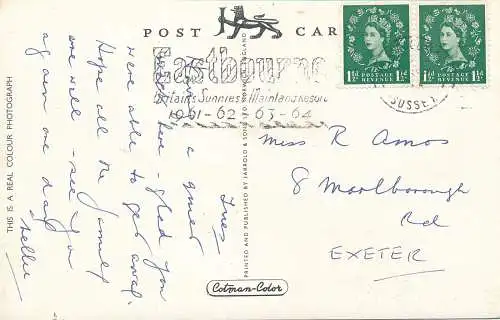 POST CARD
Eastbourne
Britain's Sunniest Mainland Resort
1961-62-63-64
SUSSEX
1½D POSTAGE REVENUE 1½D
1½D POSTAGE REVENUE 1½D
Tues
a quiet
here - glad you
were able to get away.
Hope all the family
are well - see you
again one day
Nellie
Miss R Amos
8 Marlborough
Rd
EXETER
THIS IS A REAL COLOUR PHOTOGRAPH
PRINTED AND PUBLISHED BY JARROLD & SONS LTD NORWICH ENGLAND
Cotman-Color